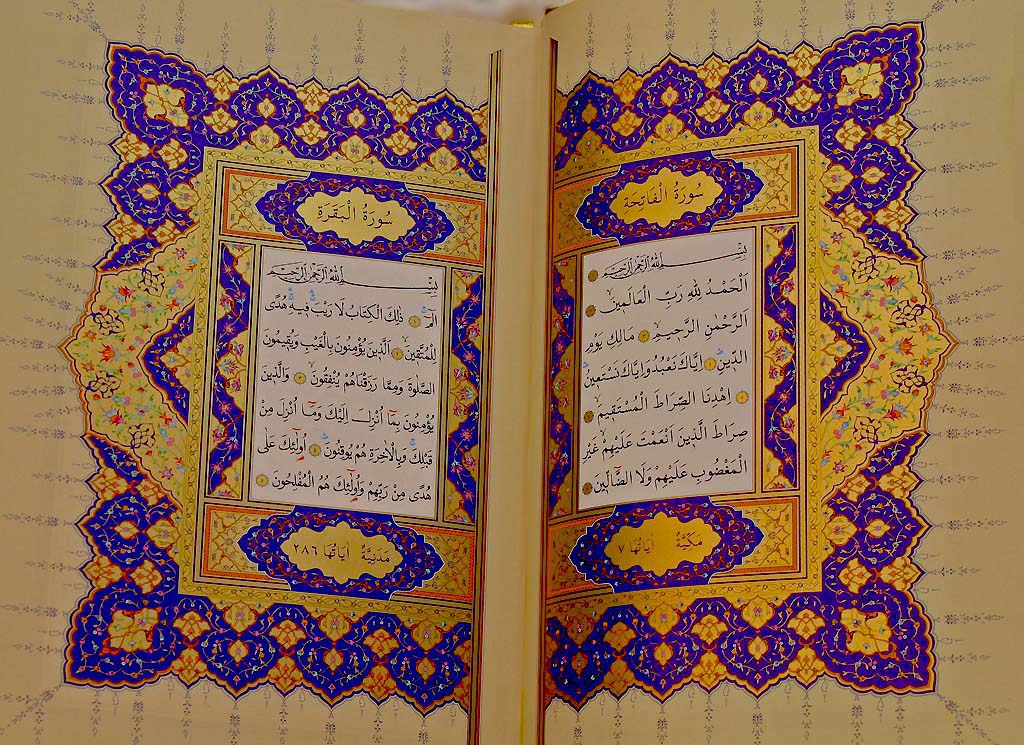 سُورَةُ الْفَاتِحَةِ
بِسْمِ اللّٰهِ الرَّحْمٰنِ الرَّحِيمِ ١
اَلْحَمْدُ لِلّٰهِ رَبِّ الْعَالَمِينَ ٢
اَلرَّحْمٰنِ الرَّحِيمِ ٣ مَالِكِ يَوْمِ
الدِّينِ ٤ اِيَّاكَ نَعْبُدُ وَاِيَّاكَ نَسْتَعِينُ
٥ اِهْدِنَا الصِّرَاطَ الْمُسْتَقِيمَ ٦
صِرَاطَ الَّذِينَ اَنْعَمْتَ عَلَيْهِمْ غَيْرِ
الْمَغْضُوبِ عَلَيْهِمْ وَلَا الضَّٓالِّينَ ٧
مَكِّيَّةٌ اٰيَاتُهَا ٧
سُورَةُ الْبَقَرَةِ
بِسْمِ اللّٰهِ الرَّحْمٰنِ الرَّحِيمِ
الٓمٓ ١ ذٰلِكَ الْكِتَابُ لَا رَيْبَ فِيهِ هُدًى
لِلْمُتَّقِينَ ٢ اَلَّذِينَ يُؤْمِنُونَ بِالْغَيْبِ وَيُقِيمُونَ
الصَّلٰوةَ وَمِمَّا رَزَقْنَاهُمْ يُنْفِقُونَ ٣ وَالَّذِينَ
يُؤْمِنُونَ بِمَٓا اُنْزِلَ اِلَيْكَ وَمَٓا اُنْزِلَ مِنْ
قَبْلِكَ وَبِالْاٰخِرَةِ هُمْ يُوقِنُونَ ٤ اُو۬لٰٓئِكَ عَلٰى
هُدًى مِنْ رَبِّهِمْ وَاُو۬لٰٓئِكَ هُمُ الْمُفْلِحُونَ ٥
مَدَنِيَّةٌ اٰيَاتُهَا ٢٨٦